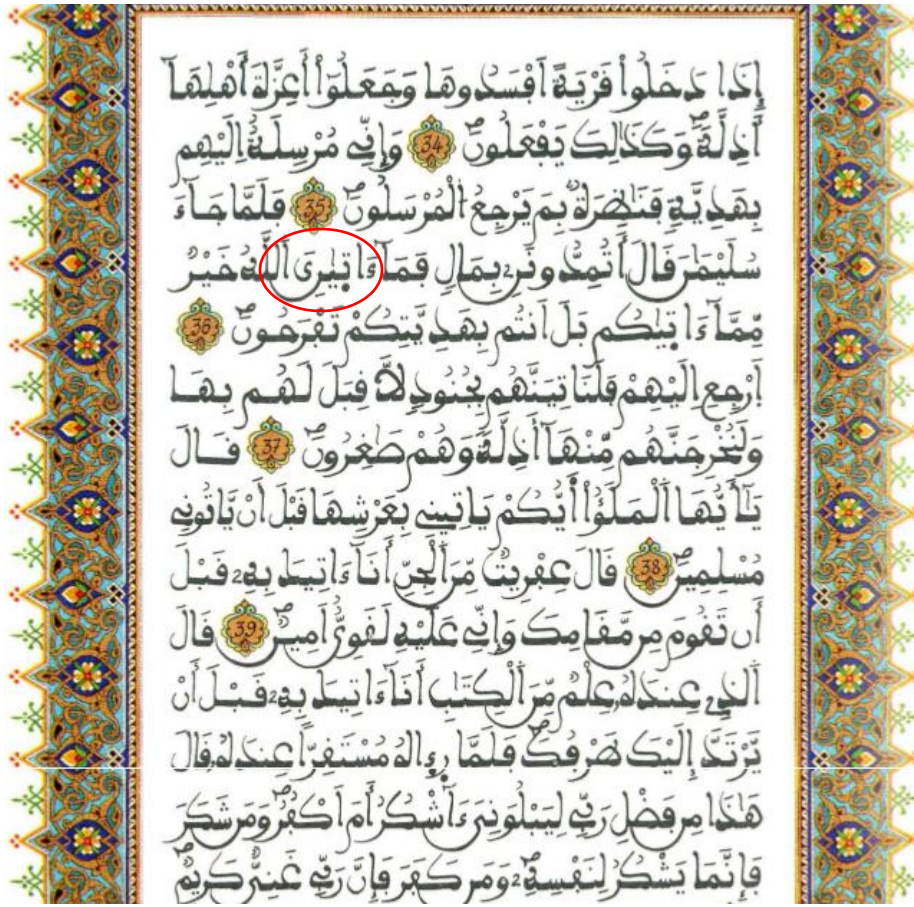 إِذَا دَخَلُواْ قَرْيَةً اَفْسَدُوهَا وَجَعَلُوٓاْ أَعِزَّةَ أَهْلِهَآ
أَذِلَّةً وَكَذَٰلِكَ يَفْعَلُونَ 34 وَإِنِّے مُرْسِلَةٌ اِلَيْهِم
بِهَدِيَّةٍ فَنَٰظِرَةٌ بِمَ يَرْجِعُ اُلْمُرْسَلُونَ 35 فَلَمَّا جَآءَ
سُلَيْمَٰنَ قَالَ أَتُمِدُّونَنِۦ بِمَالٍ فَمَآ ءَاتٜيٰنِۦَ اَللَّهُ خَيْرٌ
مِّمَّآ ءَاتٜيٰكُم بَلَ اَنتُم بِهَدِيَّتِكُمْ تَفْرَحُونَ 36
اَرْجِعِ اِلَيْهِمْ فَلَنَاتِيَنَّهُم بِجُنُودٍ لَّا قِبَلَ لَهُم بِهَا
وَلَنُخْرِجَنَّهُم مِّنْهَآ أَذِلَّةً وَهُمْ صَٰغِرُونَ 37 قَالَ
يَٰٓأَيُّهَا اَلْمَلَؤُاْ اَيُّكُمْ يَاتِينِے بِعَرْشِهَا قَبْلَ أَنْ يَّاتُونِے
مُسْلِمِينَ 38 قَالَ عِفْرِيتٌ مِّنَ اَلْجِنِّ أَنَآ ءَاتِيكَ بِهِۦ قَبْلَ
أَن تَقُومَ مِن مَّقَامِكَ وَإِنِّے عَلَيْهِ لَقَوِيٌّ اَمِينٌ 39 قَالَ
اَلذِے عِندَهُۥ عِلْمٌ مِّنَ اَلْكِتَٰبِ أَنَآ ءَاتِيكَ بِهِۦ قَبْلَ أَنْ
يَّرْتَدَّ إِلَيْكَ طَرْفُكَ فَلَمَّا رِءٜاهُ مُسْتَقِرّاً عِندَهُۥ قَالَ
هَٰذَا مِن فَضْلِ رَبِّے لِيَبْلُوَنِيَ ءَآشْكُرُ أَمَ اَكْفُرُ وَمَن شَكَرَ
فَإِنَّمَا يَشْكُرُ لِنَفْسِهِۦ وَمَن كَفَرَ فَإِنَّ رَبِّے غَنِيٌّ كَرِيمٌ